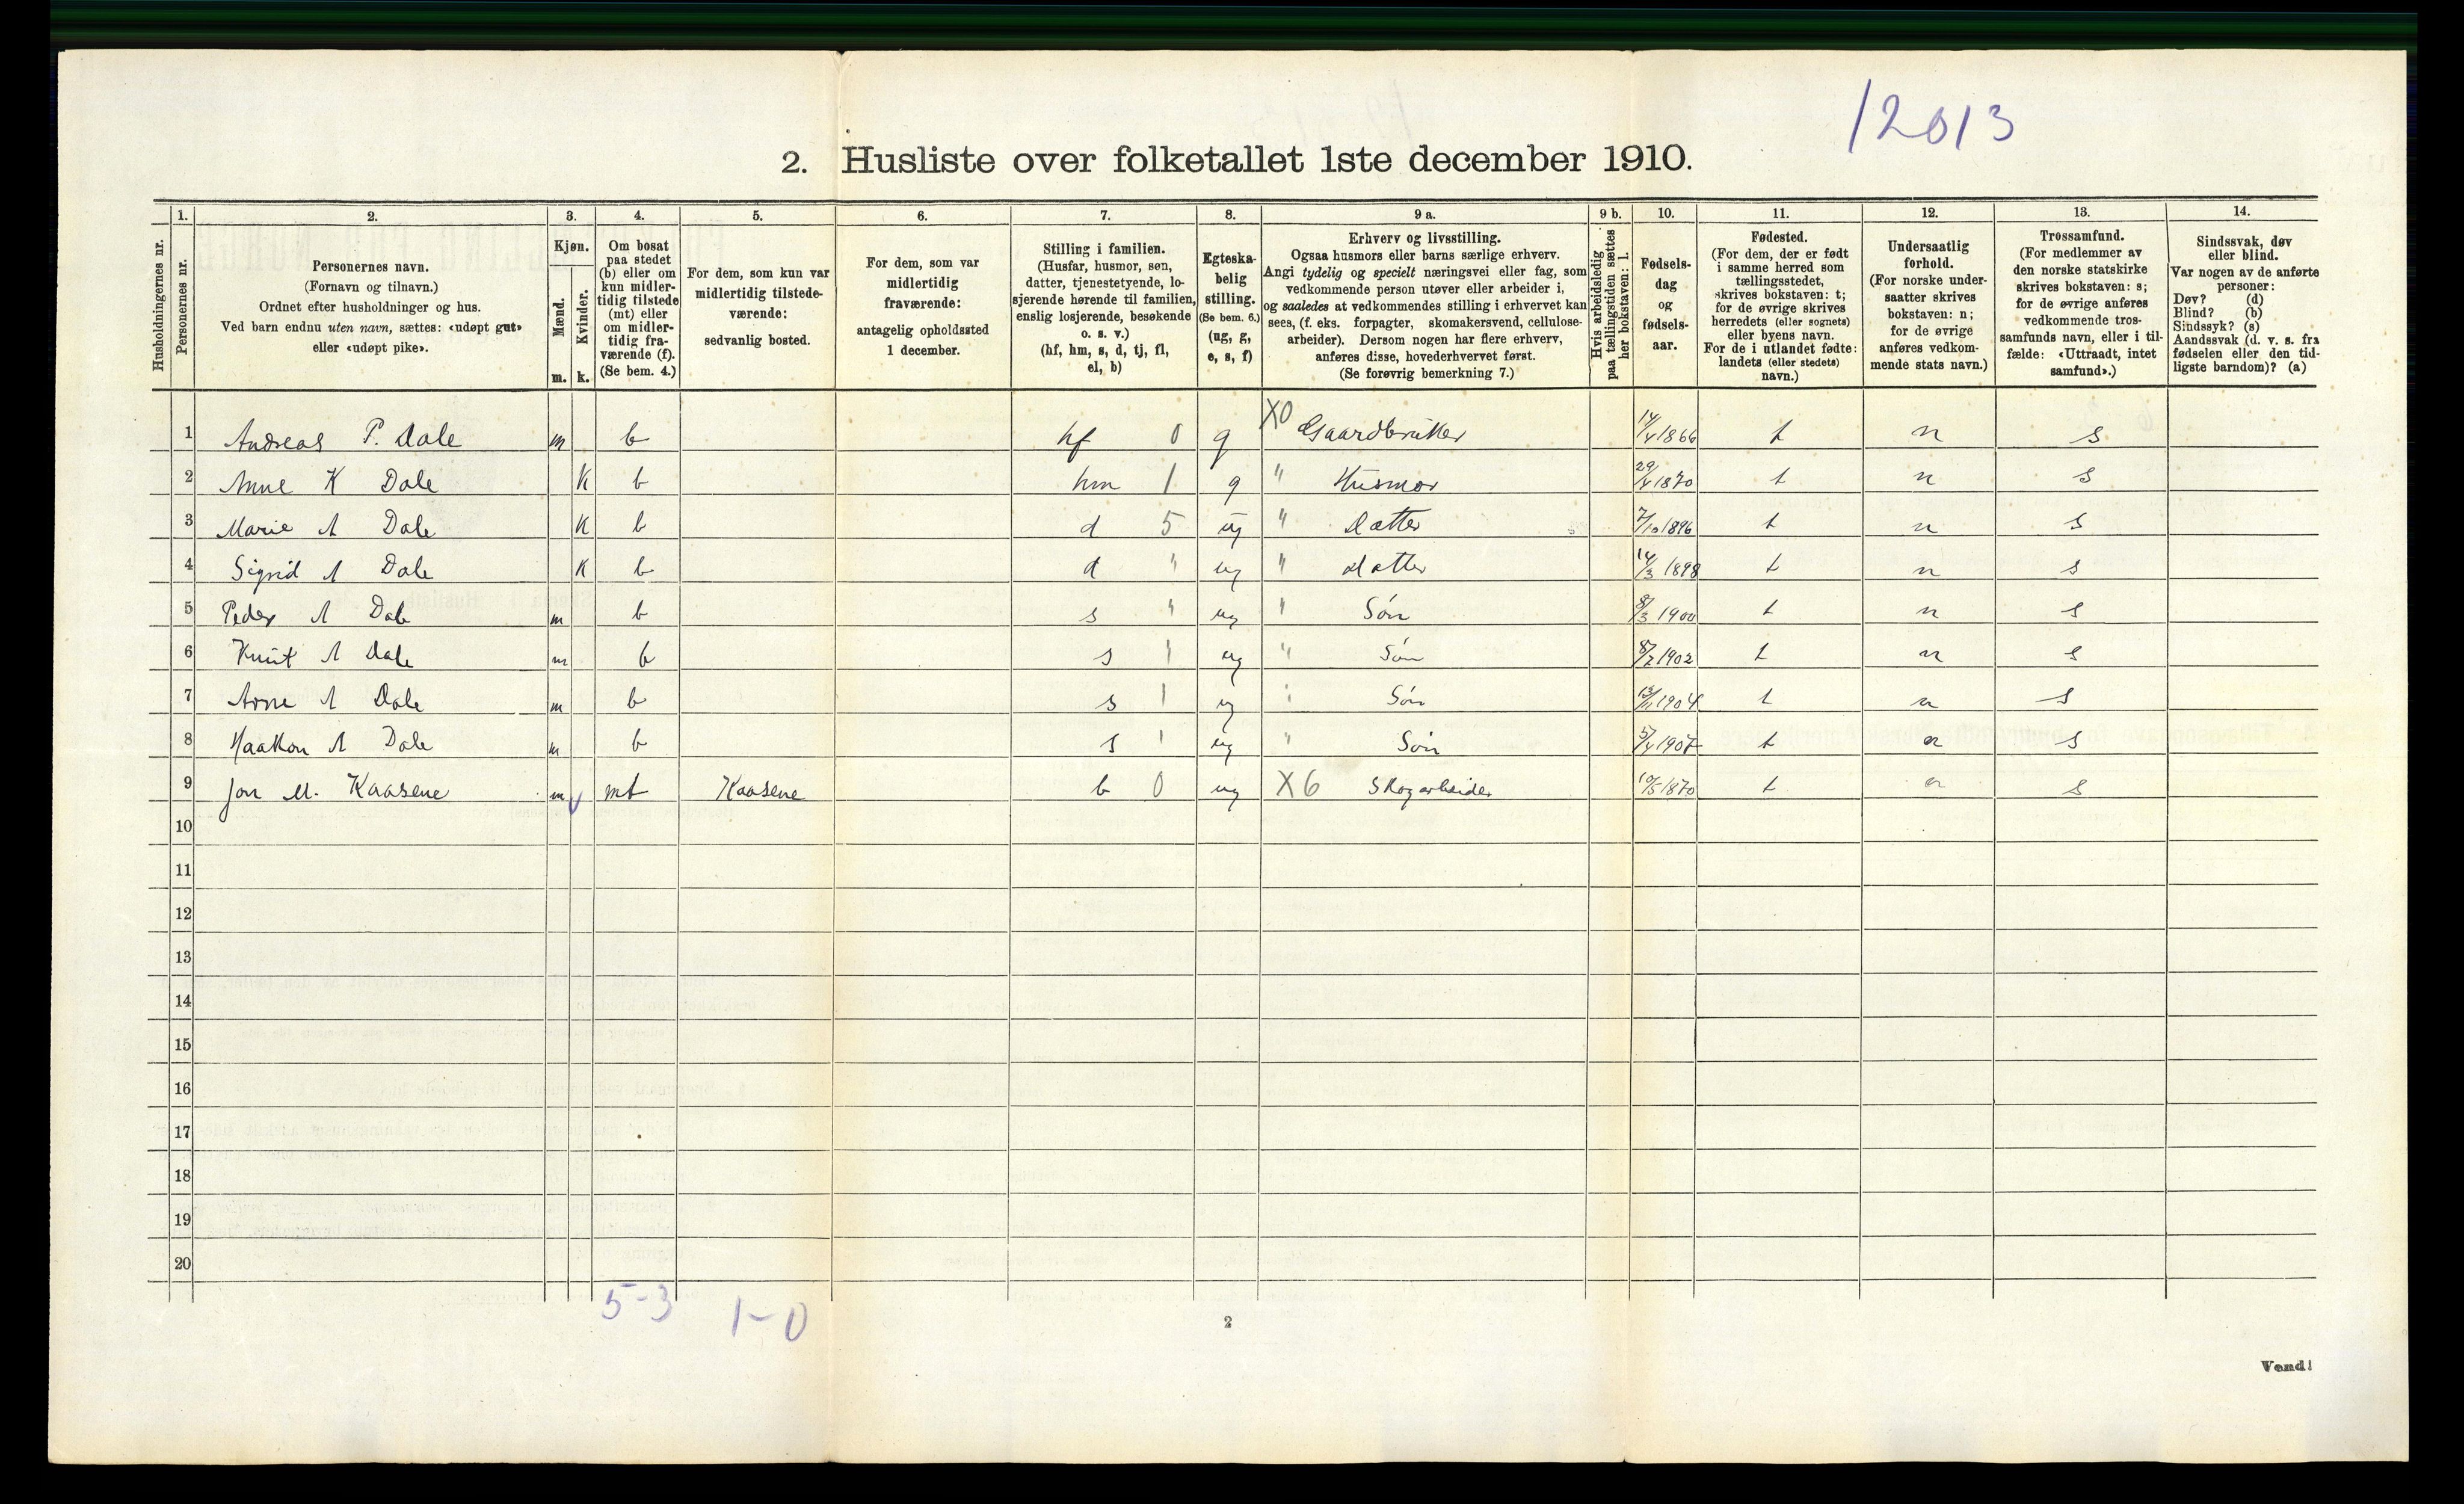 12013
2. Husliste over folketallet 1ste december 1910.
Husholdningernes nr.
1. Personernes nr.
2. Personernes navn.
(Fornavn og tilnavn.)
Ordnet efter husholdninger og hus.
Ved barn endnu uten navn, sættes: «udøpt gut»
eller «udøpt pike».
3. Kjøn.
Mænd. m.
Kvinder. k.
4. Om bosat
paa stedet
(b) eller om
kun midler-
tidig tilstede
(mt) eller
om midler-
tidig fra-
værende (f).
(Se bem. 4.)
5. For dem, som kun var
midlertidig tilstede-
værende:
sedvanlig bosted.
6. For dem, som var
midlertidig
fraværende:
antagelig opholdssted
1 december.
7. Stilling i familien.
(Husfar, husmor, søn,
datter, tjenestetyende, lo-
sjerende hørende til familien,
enslig losjerende, besøkende
o. s. v.)
(hf, hm, s, d, tj, fl,
el, b)
8. Egteska-
belig
stilling.
(Se bem. 6.)
(ug, g,
e, s, f)
9 a. Erhverv og livsstilling.
Ogsaa husmors eller barns særlige erhverv.
Angi tydelig og specielt næringsvei eller fag, som
vedkommende person utøver eller arbeider i,
og saaledes at vedkommendes stilling i erhvervet kan
sees, (f. eks. forpagter, skomakersvend, cellulose-
arbeider). Dersom nogen har flere erhverv,
anføres disse, hovederhvervet først.
(Se forøvrig bemerkning 7.)
9 b. Hvis arbeidsledig
paa tællingstiden sættes
her bokstaven: l.
10. Fødsels-
dag
og
fødsels-
aar.
11. Fødested.
(For dem, der er født
i samme herred som
tællingsstedet,
skrives bokstaven: t;
for de øvrige skrives
herredets (eller sognets)
eller byens navn.
For de i utlandet fødte:
landets (eller stedets)
navn.)
12. Undersaatlig
forhold.
(For norske under-
saatter skrives
bokstaven: n;
for de øvrige
anføres vedkom-
mende stats navn.)
13. Trossamfund.
(For medlemmer av
den norske statskirke
skrives bokstaven: s;
for de øvrige anføres
vedkommende tros-
samfunds navn, eller i til-
fælde: «Uttraadt, intet
samfund».)
14. Sindssvak, døv
eller blind.
Var nogen av de anførte
personer:
Døv? (d)
Blind? (b)
Sindssyk? (s)
Aandssvak (d. v. s. fra
fødselen eller den tid-
ligste barndom)? (a)
1 Andreas P. Dale m b hf 0 g X0 Gaardbruker 14/4 1866 t n s
2 Anne K Dale K b hm 1 g " Husmor 29/4 1870 t n s
3 Marie A Dale K b d 5 ug " Datter 7/10 1896 t n s
4 Sigrid A Dale K b d " ug " datter 14/3 1898 t n s
5 Peder A Dale m b s " ug " Søn 8/3 1900 t n s
6 Knut A Dale m b s " ug " Søn 8/2 1902 t n s
7 Arne A Dale m b s " ug " Søn 13/11 1904 t n s
8 Haakon A Dale m b s " ug " Søn 5/4 1907 t n s
9 Jon M. Kaasene m mt Kaasene b 0 ug X6 Skogarbeider 10/5 1870 t n s
10
11
12
13
14
15
16
17
18
19
20
5-3 1-0
2
Vend!